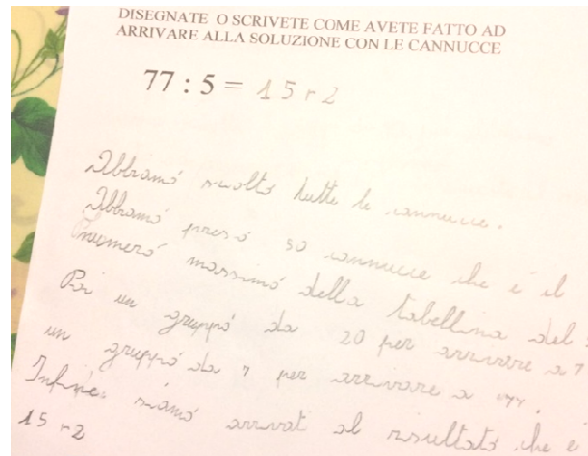 DISEGNATE O SCRIVETE COME AVETE FATTO AD
ARRIVARE ALLA SOLUZIONE CON LE CANNUCCE
77 : 5 = 15 r 2
Abbiamo sciolto tutte le cannucce.
Abbiamo preso 50 cannucce che è il
numero massimo della tabellina del
Poi un gruppo da 20 per arrivare a 7
un gruppo da 7 per arrivare a 77.
Infine siamo arrivat al risultato che è
15 r 2